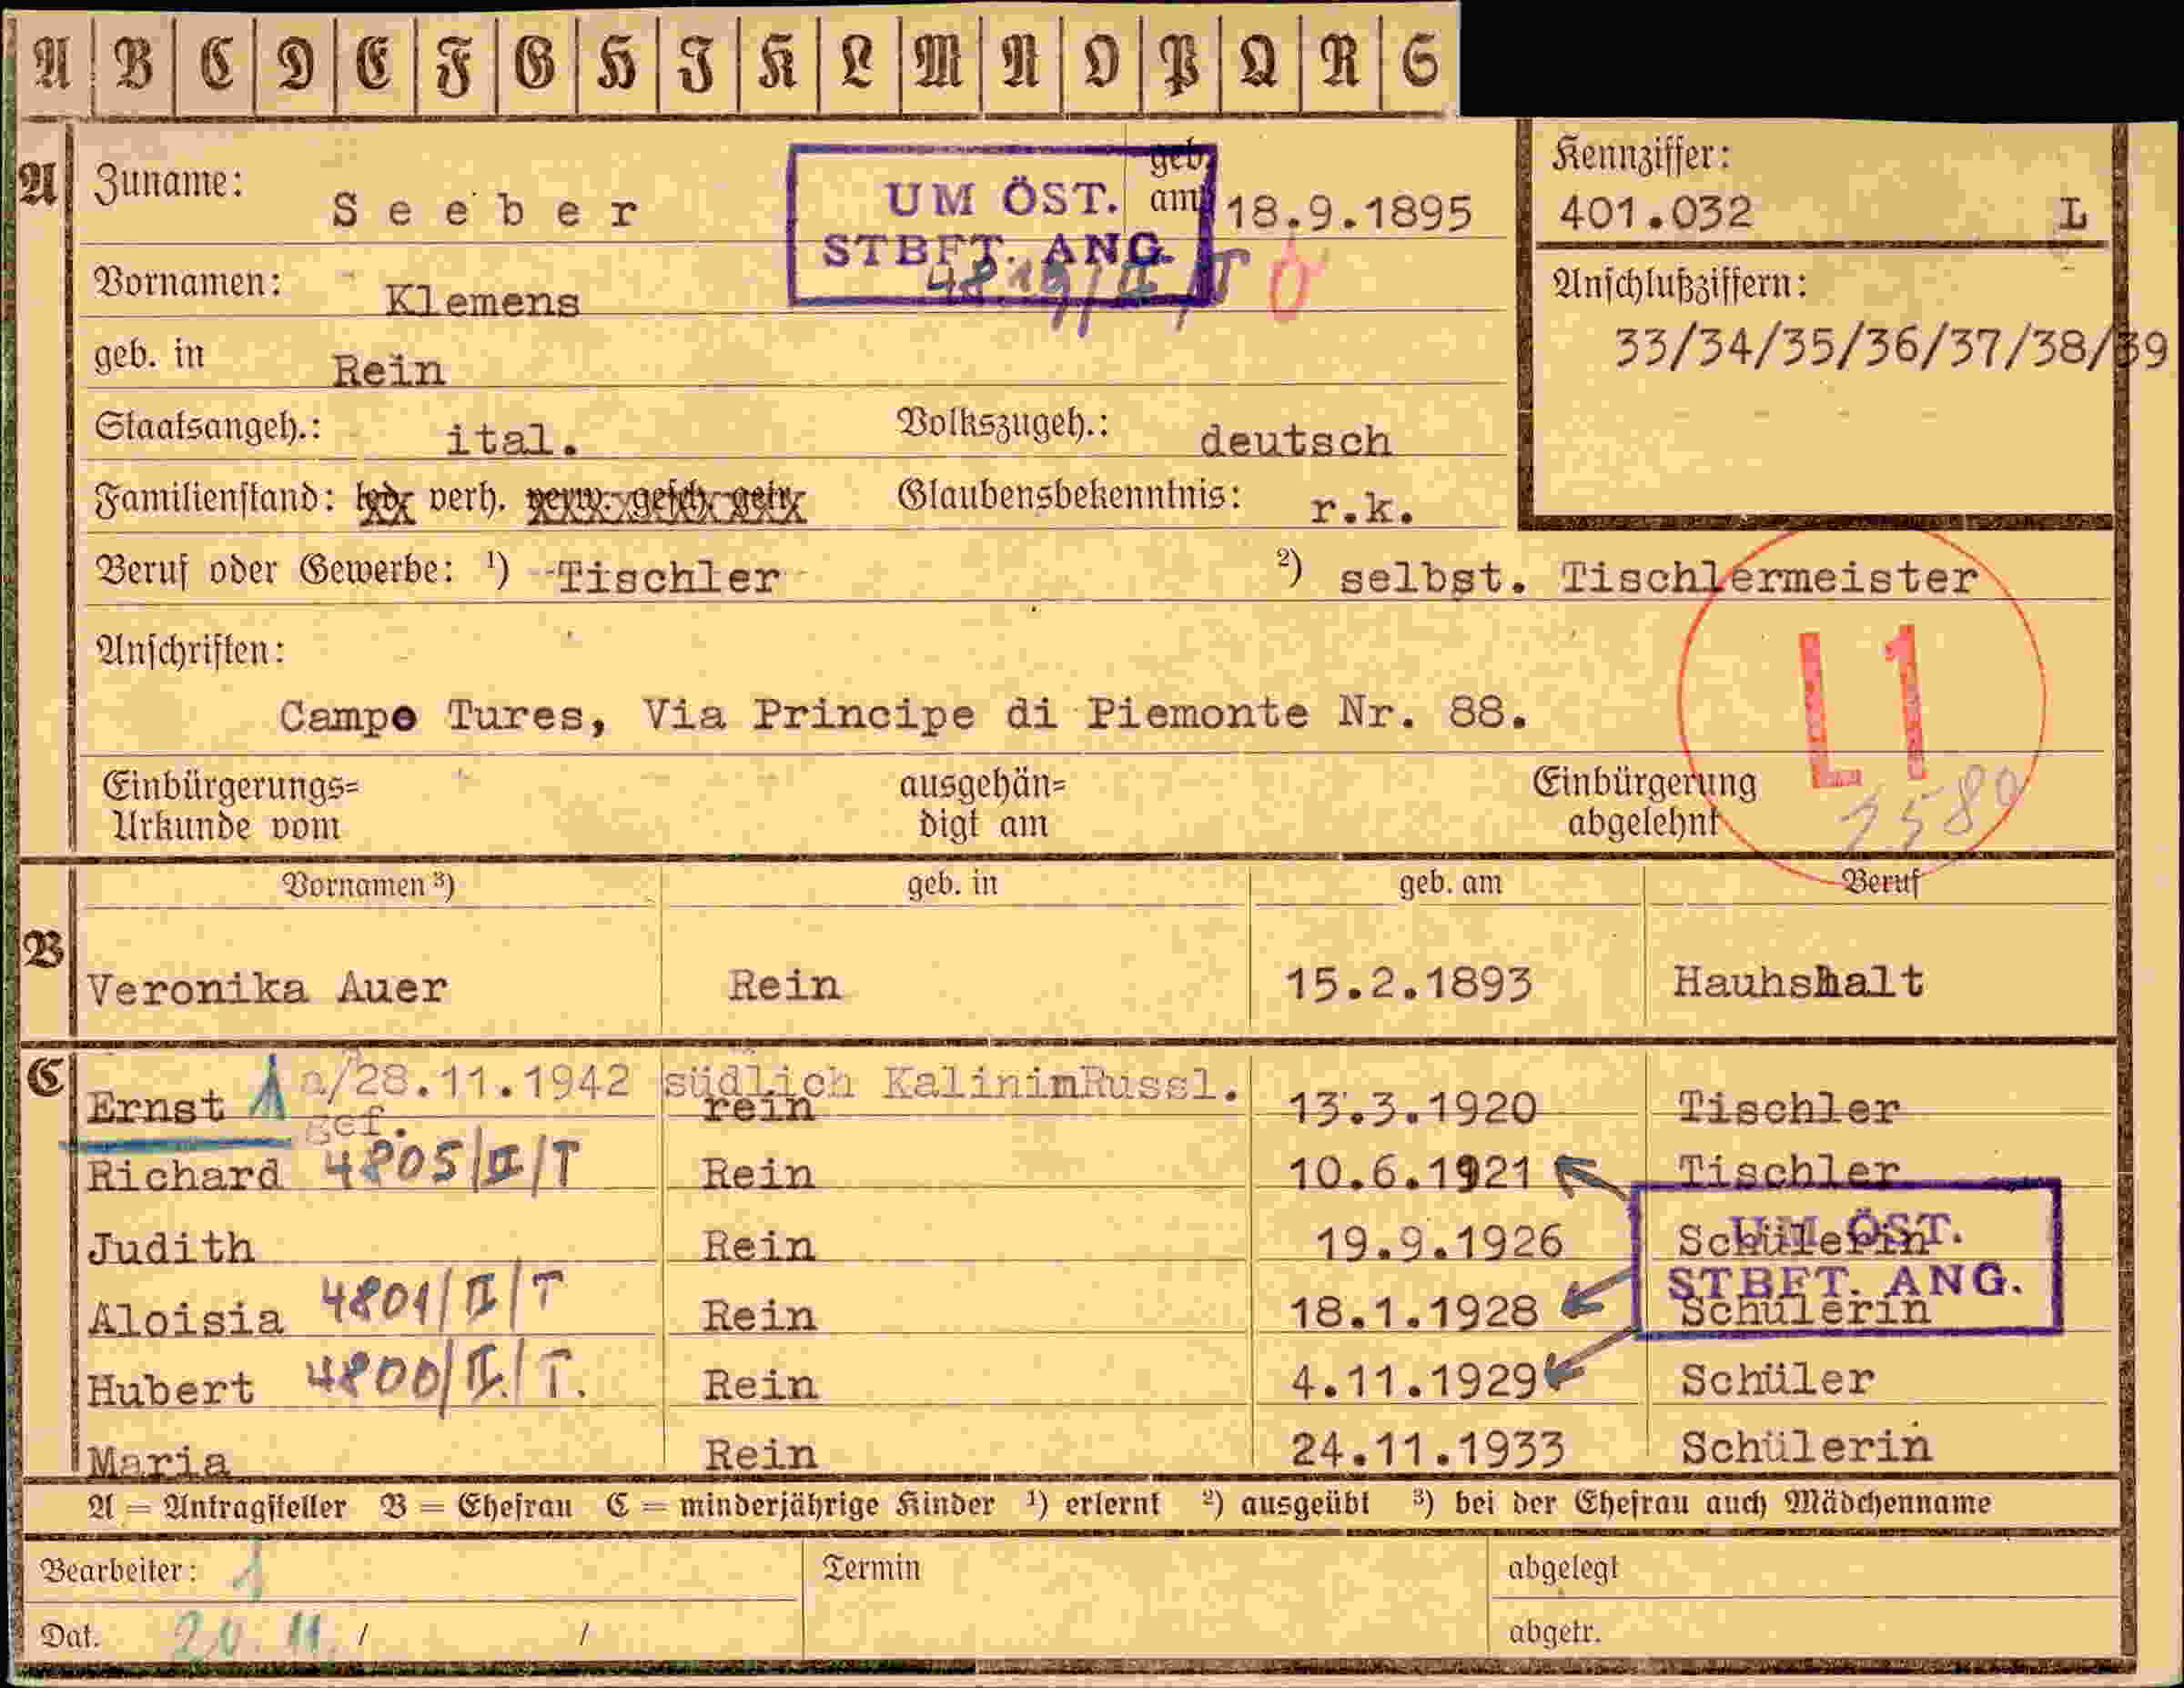 A B C D E F G H I K L M N O P Q R S
A Zuname: Seeber geb. am 18.9.1895
UM ÖST.
STBFT. ANG.
Kennziffer:
401.032 L
Vornamen: Klemens
Anschlußziffern:
33/34/35/36/37/38/39
geb. in Rein
Staatsangeh.: ital. Volkszugeh.: deutsch
Familienstand: led. verh. verw. gesch. getr. Glaubensbekenntnis: r.k.
Beruf oder Gewerbe: ¹) Tischler ²) selbst. Tischlermeister
Anschriften:
L1
Campo Tures, Via Principe di Piemonte Nr. 88.
Einbürgerungs= ausgehän= Einbürgerung
Urkunde vom digt am abgelehnt
Vornamen ³) geb. in geb. am Beruf
B
Veronika Auer Rein 15.2.1893 Hauhshalt
C
a/28.11.1942 südlich KalininRussl.
Ernst gef. rein 13.3.1920 Tischler
Richard 4805/II/T Rein 10.6.1921 Tischler
Judith Rein 19.9.1926 Schülerin
UM ÖST.
STBFT. ANG.
Aloisia 4801/II/T Rein 18.1.1928 Schülerin
Hubert 4800/II./T. Rein 4.11.1929 Schüler
Maria Rein 24.11.1933 Schülerin
A = Antragsteller B = Ehefrau C = minderjährige Kinder ¹) erlernt ²) ausgeübt ³) bei der Ehefrau auch Mädchenname
Bearbeiter: 1 Termin abgelegt
Dat. 20.11. / / abgetr.